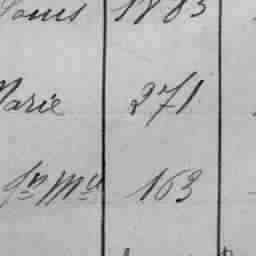 Louis 1883
Marie 271
Jn Mie 163